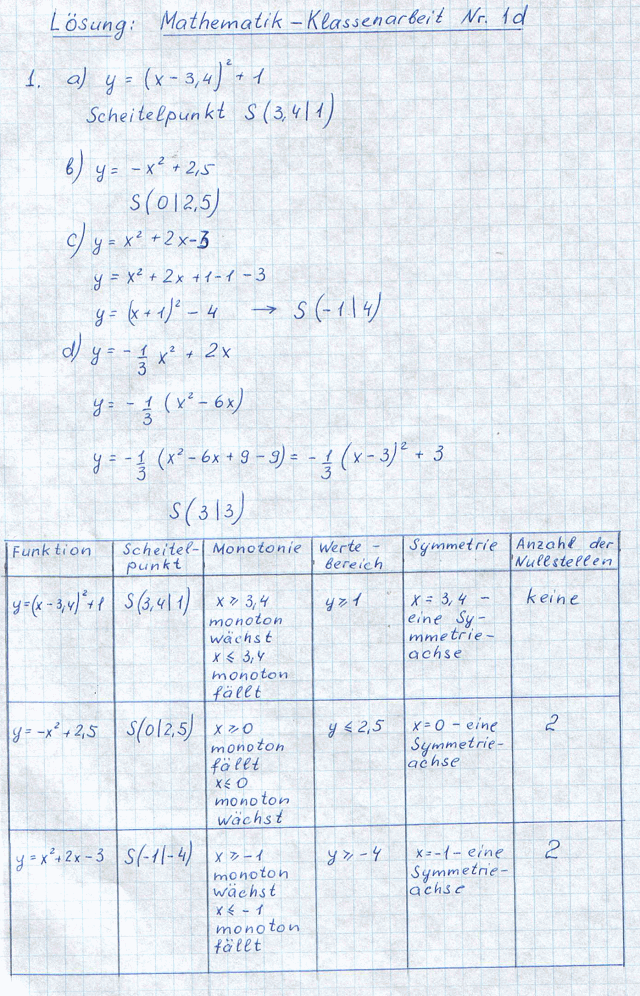 Lösung: Mathematik – Klassenarbeit Nr. 1d
1. a) y = (x – 3,4)² + 1
Scheitelpunkt S(3,4|1)
b) y = –x² + 2,5
S(0|2,5)
c) y = x² + 2x – 3
y = x² + 2x + 1 – 1 – 3
y = (x + 1)² – 4 → S(–1|4)
d) y = – 1/3 x² + 2x
y = – 1/3 (x² – 6x)
y = – 1/3 (x² – 6x + 9 – 9) = – 1/3 (x – 3)² + 3
S(3|3)
Funktion
Scheitel-
punkt
Monotonie
Werte –
bereich
Symmetrie
Anzahl der
Nullstellen
y=(x – 3,4)² + 1
S(3,4|1)
x ≥ 3,4
monoton
wächst
x ≤ 3,4
monoton
fällt
y ≥ 1
x = 3,4 –
eine Sy-
mmetrie-
achse
keine
y = –x² + 2,5
S(0|2,5)
x ≥ 0
monoton
fällt
x ≤ 0
monoton
wächst
y ≤ 2,5
x = 0 – eine
Symmetrie-
achse
2
y = x² + 2x – 3
S(–1|–4)
x ≥ –1
monoton
wächst
x ≤ –1
monoton
fällt
y ≥ –4
x = –1 – eine
Symmetrie-
achse
2